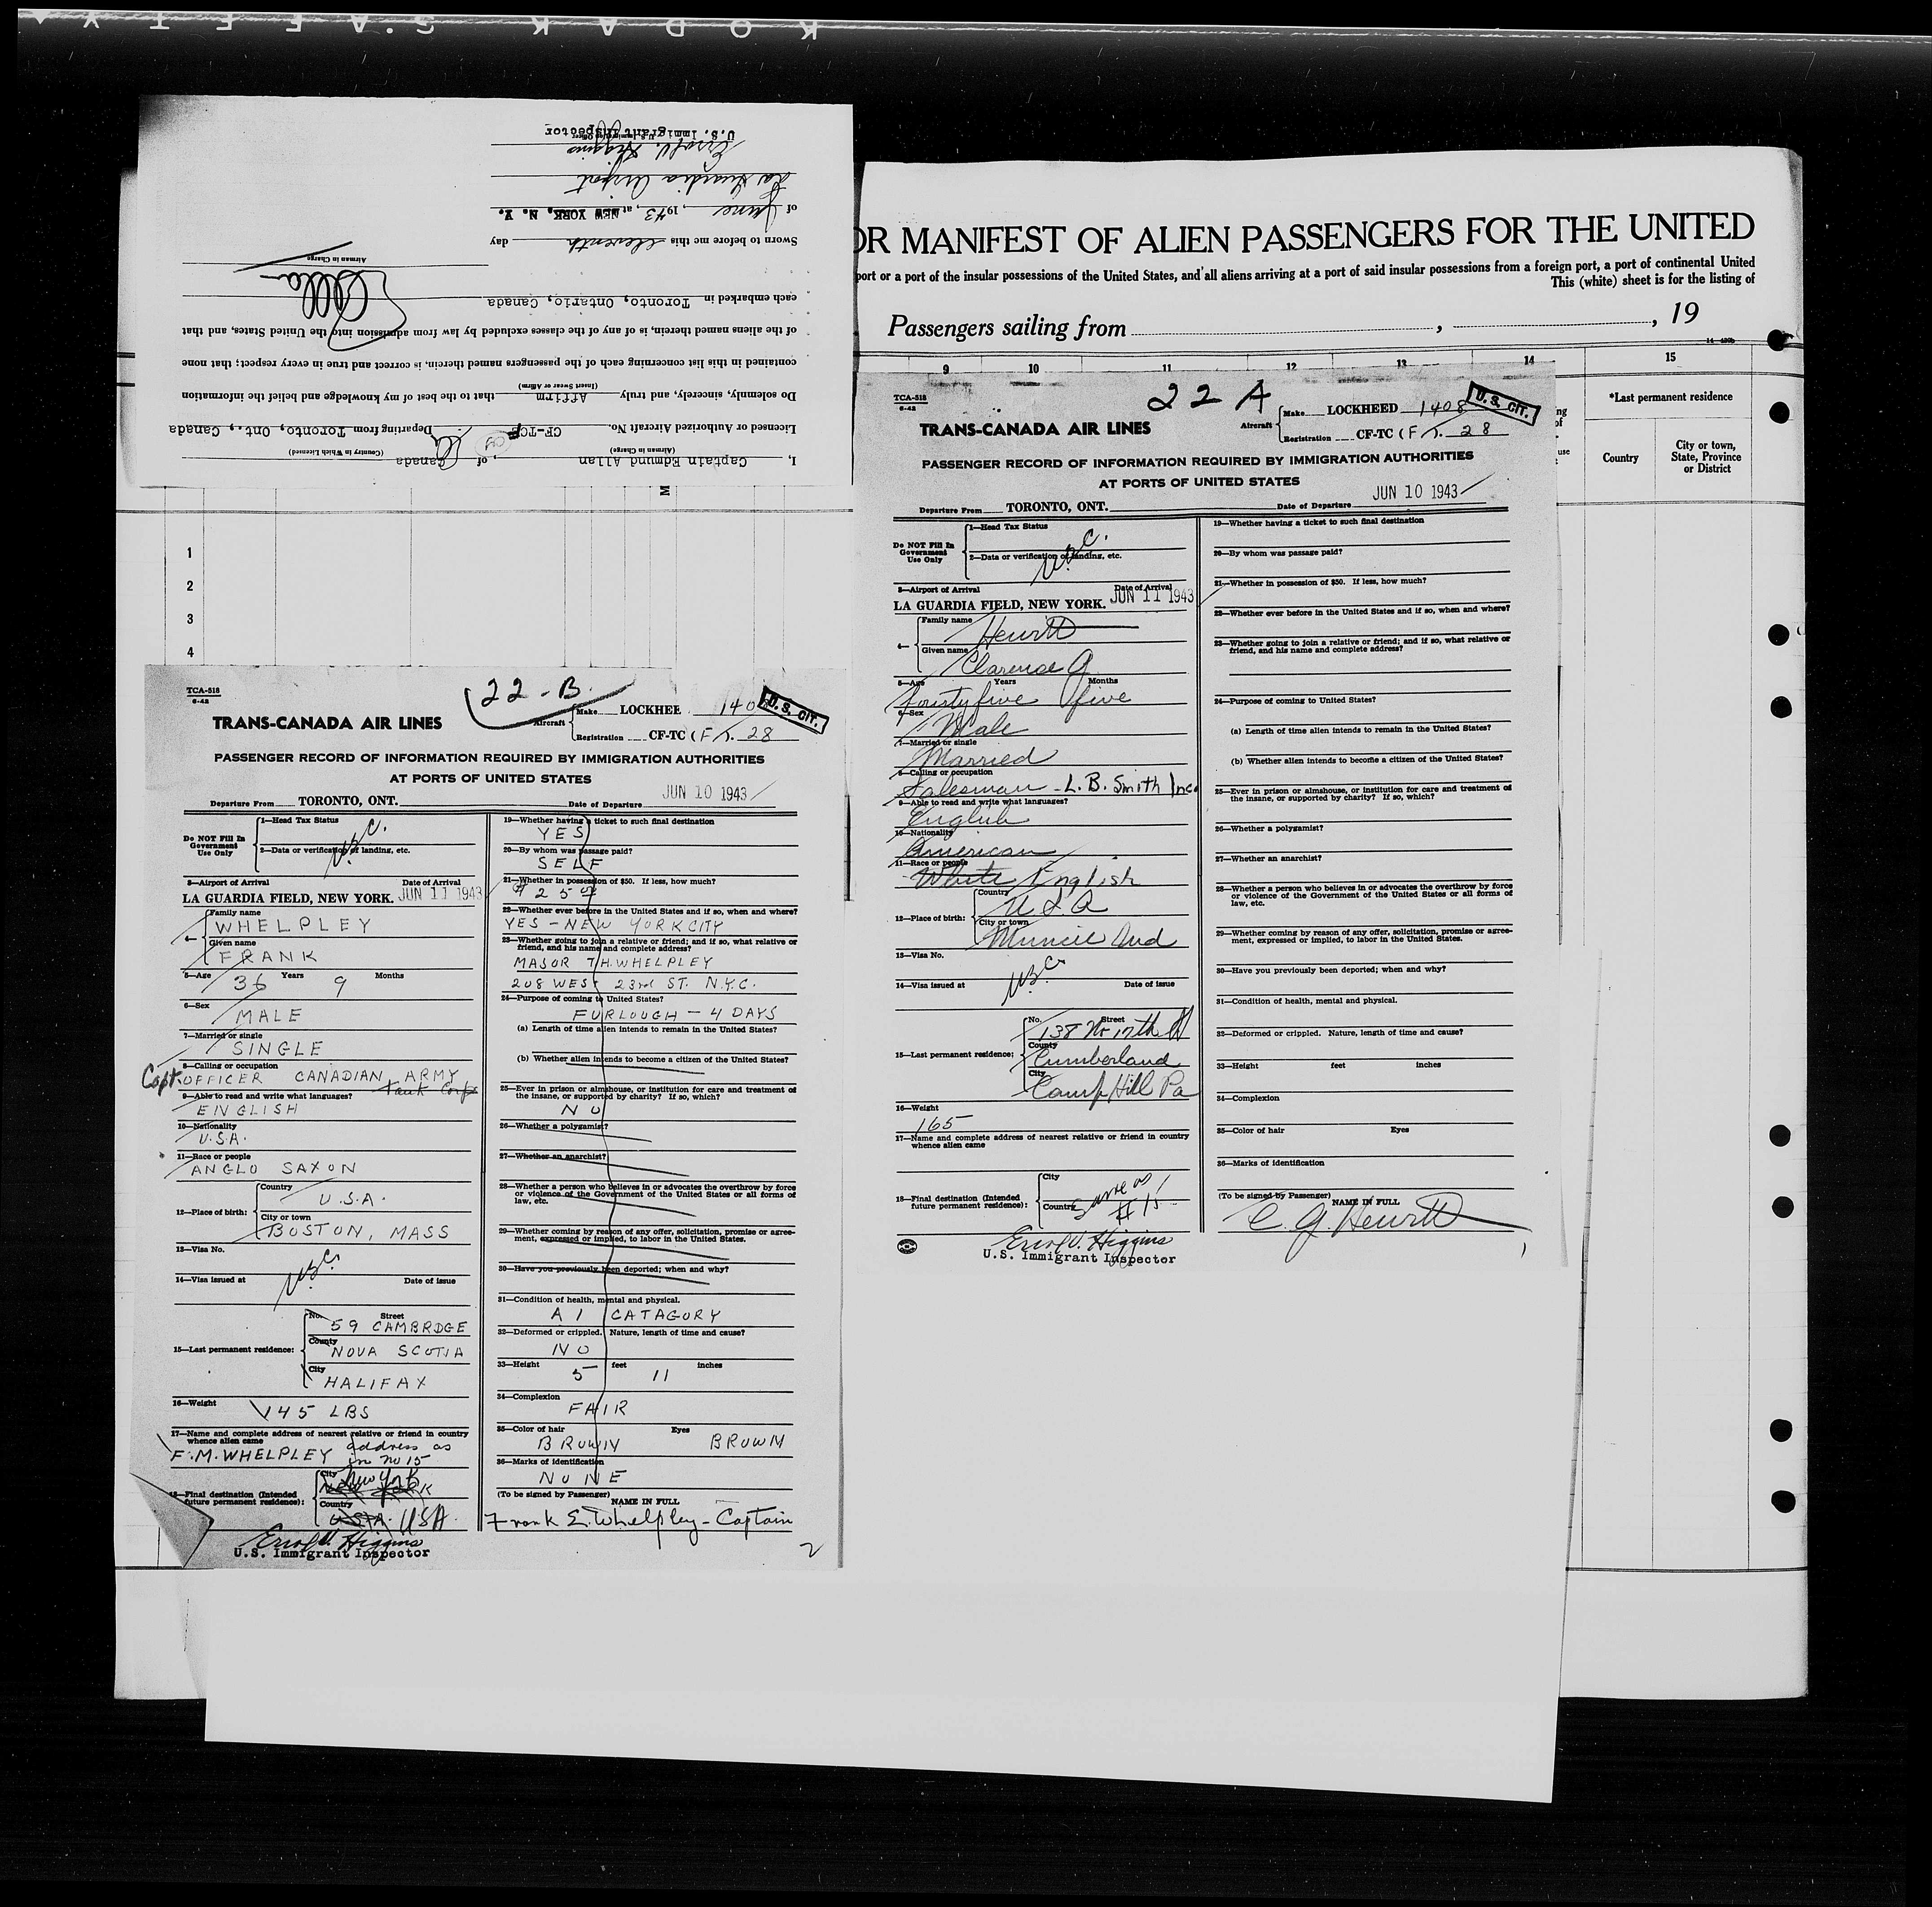 KODAK SAFETY
I, Captain Edmund Allan, of Canada
(Airman in Charge) (Country in Which Licensed)
Licensed or Authorized Aircraft No. CF-TCF Departing from Toronto, Ont., Canada
Do solemnly, sincerely, and truly Affirm that to the best of my knowledge and belief the information
(Insert Swear or Affirm)
contained in this list concerning each of the passengers named therein, is correct and true in every respect; that none
of the aliens named therein, is of any of the classes excluded by law from admission into the United States, and that
each embarked in Toronto, Ontario, Canada
Airman in Charge
Sworn to before me this eleventh day
of June, 1943, at NEW YORK, N. Y.
La Guardia Airport
Errol V. Higgins
U.S. Immigration Officer
U.S. Immigrant Inspector
OR MANIFEST OF ALIEN PASSENGERS FOR THE UNITED
port or a port of the insular possessions of the United States, and all aliens arriving at a port of said insular possessions from a foreign port, a port of continental United
This (white) sheet is for the listing of
Passengers sailing from , , 19
9 10 11 12 13 14 15
*Last permanent residence
Country
City or town, State, Province or District
1
2
3
4
TCA-518
6-42
22-B.
TRANS-CANADA AIR LINES
Aircraft
Make LOCKHEE 140
U.S. CIT.
Registration CF-TC (F T. 28
PASSENGER RECORD OF INFORMATION REQUIRED BY IMMIGRATION AUTHORITIES
AT PORTS OF UNITED STATES
Departure From TORONTO, ONT. Date of Departure JUN 10 1943
Do NOT Fill In
Government
Use Only
1—Head Tax Status
2—Data or verification of landing, etc.
U.S.C.
3—Airport of Arrival Date of Arrival
LA GUARDIA FIELD, NEW YORK. JUN 11 1943
4—
Family name
WHELPLEY
Given name
FRANK
5—Age 36 Years 9 Months
6—Sex
MALE
7—Married or single
SINGLE
8—Calling or occupation
Capt. OFFICER CANADIAN ARMY
Tank Corps
9—Able to read and write what languages?
ENGLISH
10—Nationality
U.S.A.
11—Race or people
ANGLO SAXON
12—Place of birth:
Country
U.S.A.
City or town
BOSTON, MASS
13—Visa No.
U.S.C.
14—Visa issued at Date of issue
15—Last permanent residence:
No. Street
59 CAMBRDGE
County
NOVA SCOTIA
City
HALIFAX
16—Weight
145 LBS
17—Name and complete address of nearest relative or friend in country
whence alien came
F.M. WHELPLEY address as
in no 15
18—Final destination (Intended
future permanent residence):
City New York
NEW YORK
Country
U.S.A. USA.
Errol V. Higgins
U.S. Immigrant Inspector
19—Whether having a ticket to such final destination
YES
20—By whom was passage paid?
SELF
21—Whether in possession of $50. If less, how much?
$25 00
22—Whether ever before in the United States and if so, when and where?
YES - NEW YORK CITY
23—Whether going to join a relative or friend; and if so, what relative or
friend, and his name and complete address?
MAJOR T.H. WHELPLEY
208 WEST 23rd ST. N.Y.C.
24—Purpose of coming to United States?
FURLOUGH — 4 DAYS
(a) Length of time alien intends to remain in the United States?
(b) Whether alien intends to become a citizen of the United States?
25—Ever in prison or almshouse, or institution for care and treatment of
the insane, or supported by charity? If so, which?
NO
26—Whether a polygamist?
27—Whether an anarchist?
28—Whether a person who believes in or advocates the overthrow by force
or violence of the Government of the United States or all forms of
law, etc.
29—Whether coming by reason of any offer, solicitation, promise or agree-
ment, expressed or implied, to labor in the United States.
30—Have you previously been deported; when and why?
31—Condition of health, mental and physical.
A1 CATAGORY
32—Deformed or crippled. Nature, length of time and cause?
NO
33—Height 5 feet 11 inches
34—Complexion
FAIR
35—Color of hair Eyes
BROWN BROWN
36—Marks of identification
NONE
(To be signed by Passenger)
NAME IN FULL
Frank E. Whelpley - Captain
2
TCA-518
6-42
22 A
TRANS-CANADA AIR LINES
Aircraft
Make LOCKHEED 1408
U.S. CIT.
Registration CF-TC (F T. 28
PASSENGER RECORD OF INFORMATION REQUIRED BY IMMIGRATION AUTHORITIES
AT PORTS OF UNITED STATES
Departure From TORONTO, ONT. Date of Departure JUN 10 1943
Do NOT Fill In
Government
Use Only
1—Head Tax Status
2—Data or verification of landing, etc.
U.S.C.
3—Airport of Arrival Date of Arrival
LA GUARDIA FIELD, NEW YORK. JUN 11 1943
4—
Family name
Hewitt
Given name
Clarence G
5—Age Years Months
fourty five five
6—Sex
Male
7—Married or single
Married
8—Calling or occupation
Salesman - L.B. Smith Inc.
9—Able to read and write what languages?
English
10—Nationality
American
11—Race or people
White English
12—Place of birth:
Country
U S A
City or town
Muncie Ind
13—Visa No.
U.S.C.
14—Visa issued at Date of issue
15—Last permanent residence:
No. Street
138 No 17th St
County
Cumberland
City
Camp Hill Pa
16—Weight
165
17—Name and complete address of nearest relative or friend in country
whence alien came
18—Final destination (Intended
future permanent residence):
City
Country
Same as
# 15
Errol V. Higgins
U.S. Immigrant Inspector
19—Whether having a ticket to such final destination
20—By whom was passage paid?
21—Whether in possession of $50. If less, how much?
22—Whether ever before in the United States and if so, when and where?
23—Whether going to join a relative or friend; and if so, what relative or
friend, and his name and complete address?
24—Purpose of coming to United States?
(a) Length of time alien intends to remain in the United States?
(b) Whether alien intends to become a citizen of the United States?
25—Ever in prison or almshouse, or institution for care and treatment of
the insane, or supported by charity? If so, which?
26—Whether a polygamist?
27—Whether an anarchist?
28—Whether a person who believes in or advocates the overthrow by force
or violence of the Government of the United States or all forms of
law, etc.
29—Whether coming by reason of any offer, solicitation, promise or agree-
ment, expressed or implied, to labor in the United States.
30—Have you previously been deported; when and why?
31—Condition of health, mental and physical.
32—Deformed or crippled. Nature, length of time and cause?
33—Height feet inches
34—Complexion
35—Color of hair Eyes
36—Marks of identification
(To be signed by Passenger)
NAME IN FULL
C. G. Hewitt
1